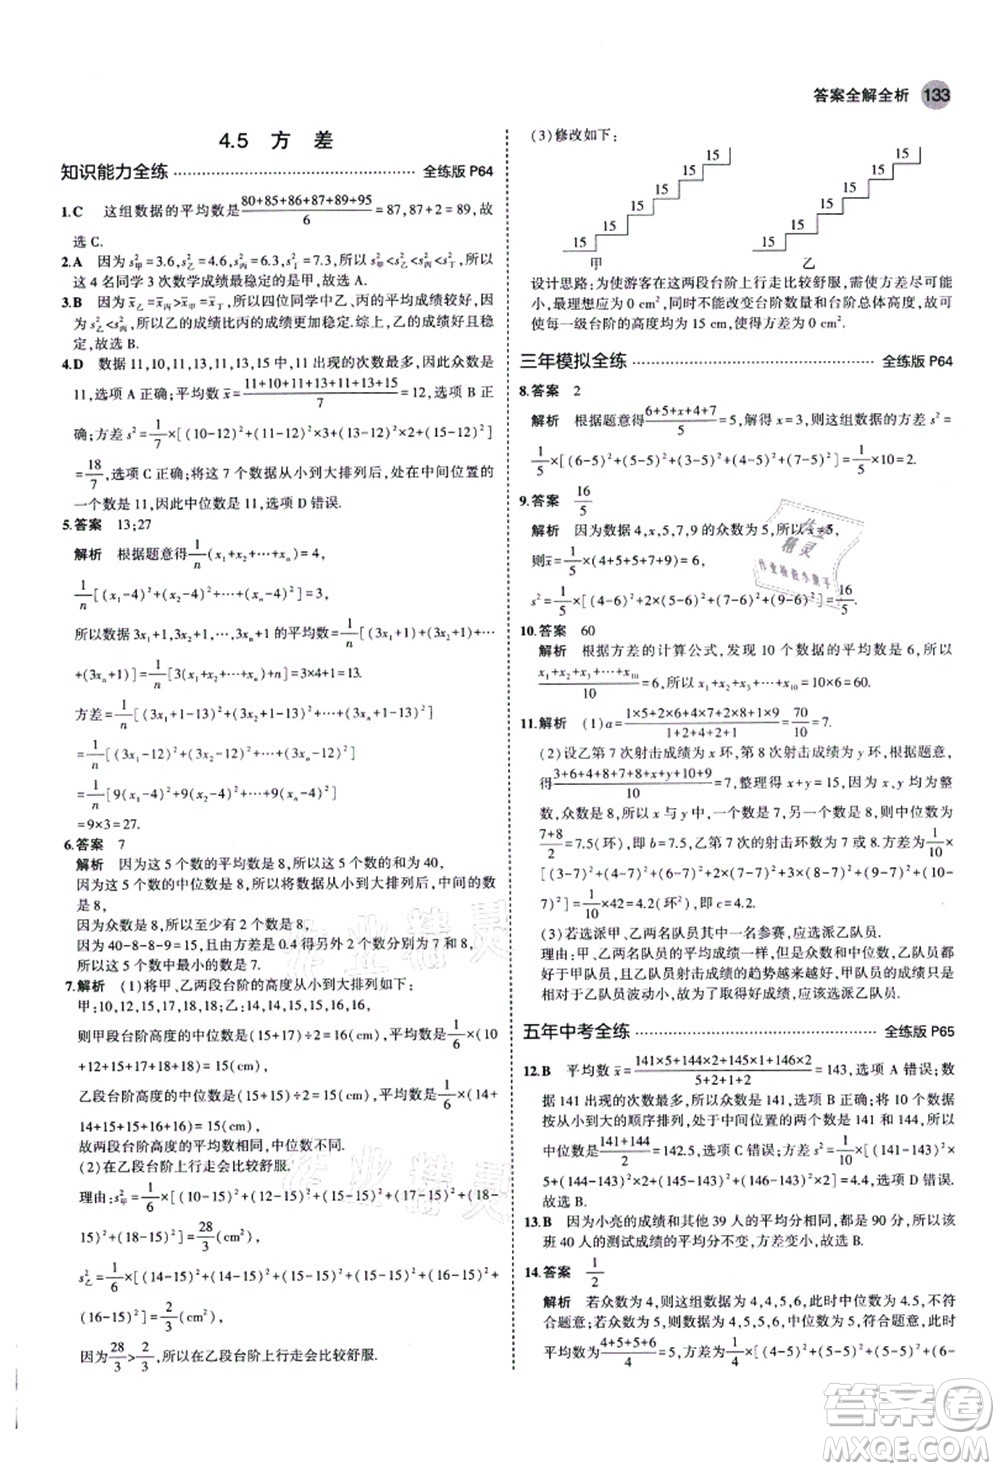 答案全解全析 133
4.5 方 差
知识能力全练 全练版 P64
1.C 这组数据的平均数是(80+85+86+87+89+95)/6=87,87+2=89,故
选 C.
2.A 因为 s²甲=3.6,s²乙=4.6,s²丙=6.3,s²丁=7.3,且 s²甲<s²乙<s²丙<s²丁,所以
这 4 名同学 3 次数学成绩最稳定的是甲,故选 A.
3.B 因为 x̄乙=x̄丙>x̄甲=x̄丁,所以四位同学中乙、丙的平均成绩较好,
又 s²乙<s²丙,所以乙的成绩比丙的成绩更加稳定.综上,乙的成绩好且稳
定,故选 B.
4.D 数据 11,10,11,13,11,13,15 中,11 出现的次数最多,因此众数是
11,选项 A 正确;平均数 x̄=(11+10+11+13+11+13+15)/7=12,选项 B 正
确;方差 s²=1/7×[(10-12)²+(11-12)²×3+(13-12)²×2+(15-12)²]
=18/7,选项 C 正确;将这 7 个数据从小到大排列后,处在中间位置的
一个数是 11,因此中位数是 11,选项 D 错误.
5.答案 13;27
解析 根据题意得1/n(x₁+x₂+…+xₙ)=4,
1/n[(x₁-4)²+(x₂-4)²+…+(xₙ-4)²]=3,
所以数据 3x₁+1,3x₂+1,…,3xₙ+1 的平均数=1/n[(3x₁+1)+(3x₂+1)+…
+(3xₙ+1)]=1/n[3(x₁+x₂+…+xₙ)+n]=3×4+1=13.
方差=1/n[(3x₁+1-13)²+(3x₂+1-13)²+…+(3xₙ+1-13)²]
=1/n[(3x₁-12)²+(3x₂-12)²+…+(3xₙ-12)²]
=1/n[9(x₁-4)²+9(x₂-4)²+…+9(xₙ-4)²]
=9×3=27.
6.答案 7
解析 因为这 5 个数的平均数是 8,所以这 5 个数的和为 40,
因为这 5 个数的中位数是 8,所以将数据从小到大排列后,中间的数
是 8,
因为众数是 8,所以至少有 2 个数是 8,
因为 40-8-8-8=16,且由方差是 0.4 得另外 2 个数分别为 7 和 9,
所以这 5 个数中最小的数是 7.
7.解析 (1)将甲、乙两段台阶的高度从小到大排列如下:
甲:10,12,15,17,18,18;乙:14,14,15,15,16,16,
则甲段台阶高度的中位数是(15+17)÷2=16(cm),平均数是1/6×
(10+12+15+17+18+18)=15(cm);
乙段台阶高度的中位数是(15+15)÷2=15(cm),平均数是1/6×
(14+14+15+15+16+16)=15(cm).
故两段台阶高度的平均数相同,中位数不同.
(2)在乙段台阶上行走会比较舒服.
理由:s²甲=1/6×[(10-15)²+(12-15)²+(15-15)²+(17-15)²+(18-
15)²+(18-15)²]=28/3(cm²),
s²乙=1/6×[(14-15)²+(14-15)²+(15-15)²+(15-15)²+(16-15)²+
(16-15)²]=2/3(cm²),
因为28/3>2/3,所以在乙段台阶上行走会比较舒服.
(3)修改如下:
15 15 15 15 15 15
甲
15 15 15 15 15 15
乙
设计思路:为使游客在这两段台阶上行走比较舒服,需使方差尽可能
小,最理想应为 0 cm²,同时不能改变台阶数量和台阶总体高度,故可
使每一级台阶的高度均为 15 cm,则方差为 0 cm².
三年模拟全练 全练版 P64
8.答案 2
解析 根据题意得(6+5+x+4+7)/5=5,解得 x=3,则这组数据的方差 s²=
1/5×[(6-5)²+(5-5)²+(3-5)²+(4-5)²+(7-5)²]=1/5×10=2.
9.答案 16/5
解析 因为数据 4,x,5,7,9 的众数为 5,所以 x=5,
则 x̄=1/5×(4+5+5+7+9)=6,
s²=1/5×[(4-6)²+(5-6)²×2+(7-6)²+(9-6)²]=16/5.
10.答案 60
解析 根据方差的计算公式,发现 10 个数据的平均数是 6,所以
(x₁+x₂+x₃+…+x₁₀)/10=6,所以 x₁+x₂+x₃+…+x₁₀=10×6=60.
11.解析 (1)a=(1×5+2×6+4×7+2×8+1×9)/(1+2+4+2+1)=70/10=7.
(2)设乙第 7 次射击成绩为 x 环,第 8 次射击成绩为 y 环,根据题意,
得(3+6+4+8+7+8+x+y+10+9)/10=7,整理得 x+y=15,因为 x、y 均为整
数,众数是 8,所以 x 与 y 中一个数是 7,另一个数是 8,则中位数为
(7+8)/2=7.5(环),即 b=7.5,乙第 7 次的射击环数为 7 或 8 环,c=1/10×
[(3-7)²+(4-7)²+(6-7)²+(7-7)²×2+(8-7)²×3+(9-7)²+(10-
7)²]=1/10×42=4.2.
(3)若选派甲、乙两名队员中的一名参赛,应选派乙队员.
理由:甲、乙两名队员的平均成绩一样,但乙队员的中位数、众数都大
于甲队员,说明乙队员成绩的趋势越来越好,虽然甲队员的成绩
相对于乙队员波动小,但为了取得好成绩,应该选派乙队员.
五年中考全练 全练版 P65
12.B 平均数 x̄=(141×5+144×2+145×1+146×2)/(5+2+1+2)=143,选项 A 错误;数
据 141 出现的次数最多,所以众数是 141,选项 B 正确;将 10 个数据
按从小到大的顺序排列,处于中间位置的两个数是 141 和 144,所以
中位数是(141+144)/2=142.5,选项 C 错误;方差 s²=1/10×[(141-143)²×
5+(144-143)²×2+(145-143)²+(146-143)²×2]=4.4,选项 D 错误.
故选 B.
13.B 因为小亮的成绩和 39 人的平均分相同,都是 90 分,所以该
班 40 人的测试成绩的平均分不变,方差变小,故选 B.
14.答案 1/2
解析 若众数为 4,则这组数据为 4,4,5,6,此时中位数为 4.5,不符
合题意;若众数为 5,则这组数据为 4,5,5,6,此时中位数为 5,符合题意,此时
平均数为(4+5+5+6)/4=5,方差为1/4×[(4-5)²+(5-5)²+(5-5)²+(6-
作业精灵
作业检查小助手
作业精灵
作业精灵
答案圈
MXQE.COM